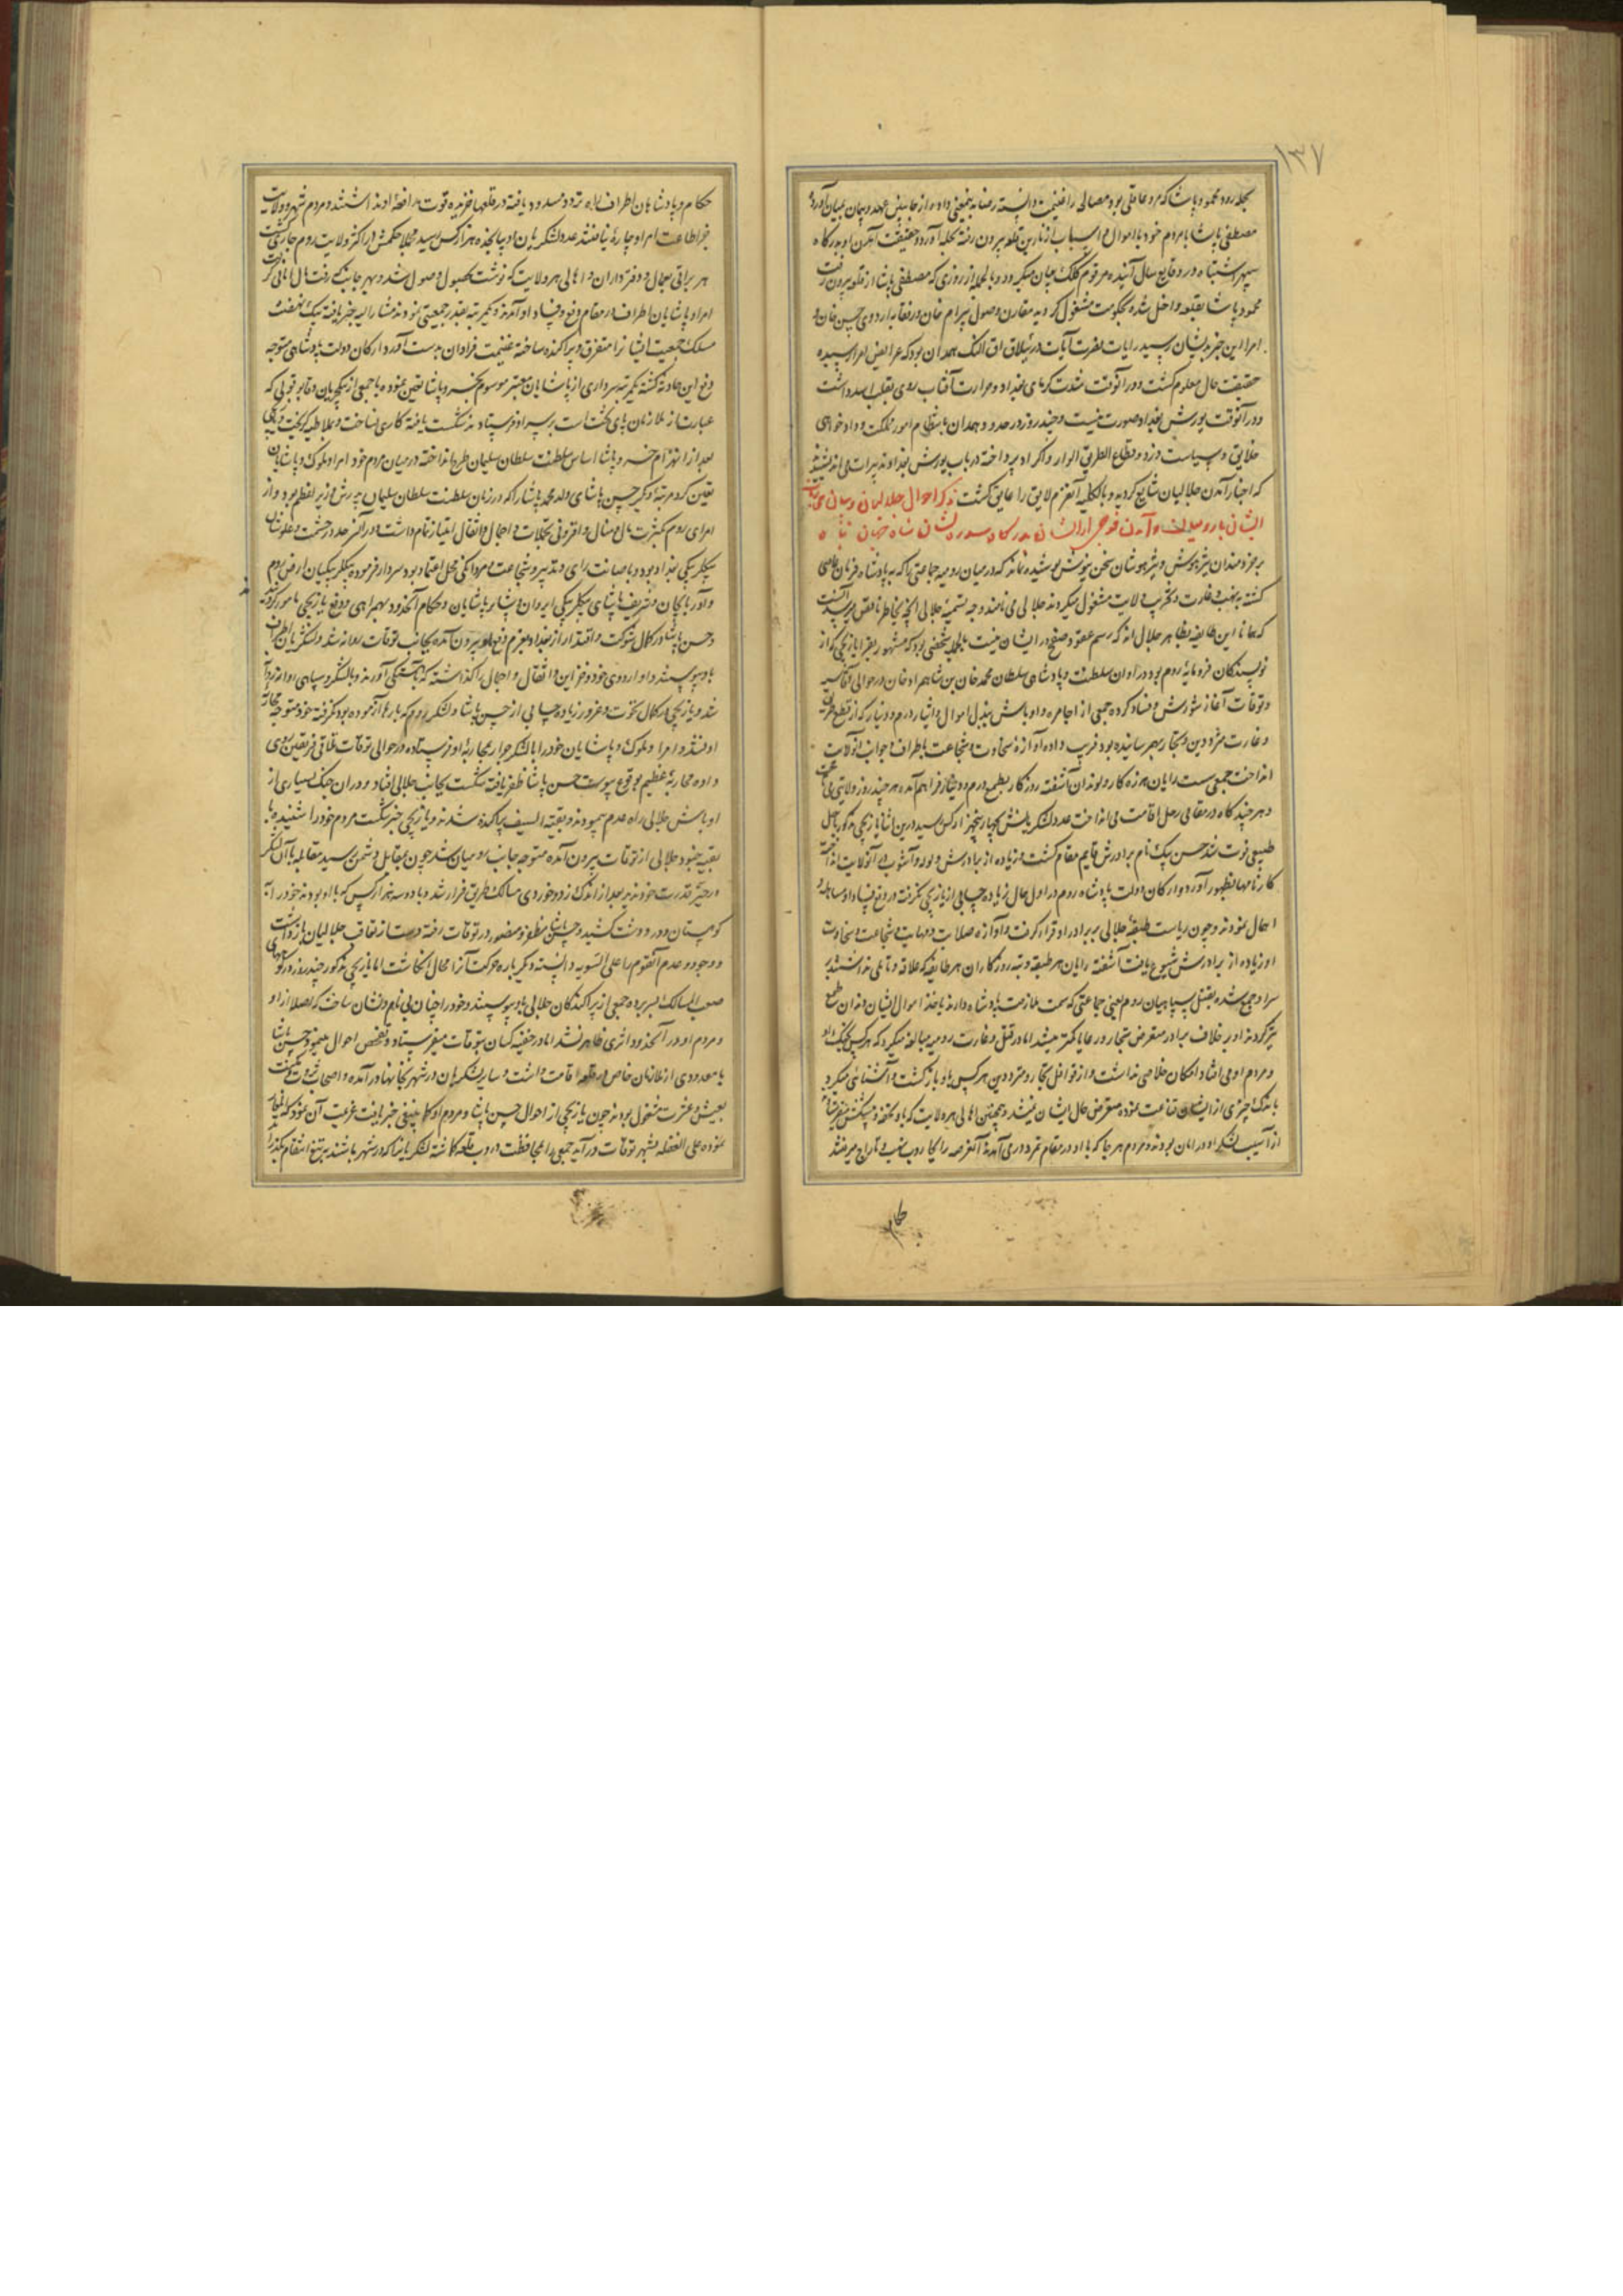 ۱۳۷
بحله رود محمود پاشا که مرد عاقلی بود مصالحه را غنیمت دانسته رضا بدینمعنی داده از جانبین عهد و پیمان بمیان آورده
مصطفی پاشا با مردم خود با اموال و اسباب از نارین قلعه بیرون رفته بحله آورد و حقیقت آمدن او بدرگاه
سپهر اشتباه در وقایع سال آینده مرقوم کلک بیان میگردد و بالجمله از روزی که مصطفی پاشا از قلعه بیرون رفت
محمود پاشا بقلعه داخل شده بحکومت مشغول گردید مقارن وصول بیرام خان و رفقا به اردوی حسین خان و
امرا این خبر بدیشان رسید رایات نصرت آیات در ییلاق اق النک همدان بود که عرایض امرا رسیده
حقیقت حال معلوم گشت و در آنوقت شدت گرمای بغداد و حرارت آفتاب روی بقلب اسد داشت
و در آنوقت یورش بغداد صورت نیست و چند روز در حدود همدان بانتظام امور مملکت و داد خواهی
خلایق و سیاست دزد و قطاع الطریق الوار و اکراد پرداخته در باب یورش بغداد تدبیرات می اندیشیدند
که اخبار آمدن جلالیان شایع گردید و بالکلیه آنعزم لایق را عایق گشت ذکر احوال جلالیان و بیان
ایشان با رومیان و آمدن فوجی از ایشان بدرگاه سدره نشان شاه جهان پناه
بر خردمندان تیزهوش و تیزهوشان سخن نیوش پوشیده نماند که در میان رومیه جماعتی را که به پادشاه و فرمان عاصی
گشته بنهب و غارت و تخریب ولایت مشغول میگردند جلالی می نامند وجه تسمیه جلالی آنچه بخاطر ناقص میرسد آنست
که همانا این طایفه مظاهر جلال اند که رسم عفو و صفح در ایشان نیست بالجمله شخصی بود که مشهور بقرا یازیجی که از
نویسندگان فرومایه روم بود در اوان سلطنت و پادشاهی سلطان محمد خان بن سلطان مراد خان در حوالی
و توقات آغاز شورش و فساد کرده جمعی از اجامره و اوباش ببذل اموال و ایثار درم و دینار که از قطع طریق
و غارت مترددین و تجار بهم رسانیده بود فریب داده آوازه سخاوت و شجاعت باطراف و جوانب آنولایت
انداخت جمعی سست رایان هرزه کار و لوندان آشفته روزگار بطمع درم و دینار فراهم آمده هر چند روز ولایتی می تاخت
و هر چند گاه در مقامی رحل اقامت می انداخت عدد لشکریانش بچهار پنجهزار کس رسید درین اثنا یازیجی مذکور باجل
طبیعی فوت شد حسن بیک نام برادرش قایم مقام گشت و زیاده از برادرش ولوله و آشوب در آنولایت انداخته
کارنامها بظهور آورد و ارکان دولت پادشاه روم در اول حال زیاده حسابی از یازیجی نگرفته در دفع فساد او مساهله و
اهمال نمودند و چون ریاست طبقه جلالی بر برادر او قرار گرفت و آوازه صلابت و مهابت و شجاعت و سخاوت
او زیاده از برادرش شیوع یافت آشفته رایان هر طبقه و تبه روزگاران هر طایفه که علاقه و تأملی نداشتند بر
سر او جمع شده بقتل سپاهیان روم یعنی جماعتی که سمت ملازمت پادشاه دارند و باخذ اموال ایشان دندان طمع
تیز کردند او بر خلاف برادر متعرض تجار و رعایا کمتر میشد اما در قتل و غارت رومیه مبالغه میکرد که هر کس بچنگ او
و مردم او می افتاد امکان خلاصی نداشت و از قوافل تجار و مترددین هر کس باو بازگشت و آشنائی میکرد
باندک چیزی از ایشان قناعت نموده متعرض حال ایشان نمیشد و همچنین اهالی هر ولایت که باو بتحفه و پیشکش
از آسیب لشکر او در امان بودند و مردم هر جا که با او در مقام تمرد در می آمدند آنعرصه را بجاروب نهب و تاراج میرفتند
حکام
حکام و پادشاهان اطراف راه تردد مسدود یافته در قلعها خزیده قوت مدافعه او نداشتند و مردم شهر و ولایت
بجز اطاعت امر او چاره نیافتند عدد لشکریان او به پانجده هزار کس رسید مجملا حکمش در اکثر ولایت روم جاری گشت
هر براتی بعمال و دفتر داران و اهالی هر ولایت که نوشت مقبول و موصول شد و بهر جانب که رفت مال امانی گرفت
امرا و پاشایان اطراف در مقام دفع و فساد او آمدند و یکمرتبه بقدر جمعیتی نمودند مشارالیه خبر یافته نیک نهفت
مسلک جمعیت ایشانرا متفرق و پراکنده ساخته غنیمت فراوان بدست آورد ارکان دولت پادشاهی متوجه
دفع این حادثه گشته یکمرتبه سرداری از پاشایان معتبر موسوم بخسرو پاشا تعیین نموده با جمعی از ینکچریان و قاپو قولی که
عبارت از ملازمان پای تخت است بر سر او فرستادند شکست یافته کاری نساخت و بملاطیه گریخت
بعد از انهزام خسرو پاشا اساس سلطنت سلطان سلیمان طرح انداخته در میان مردم خود امرا و ملوک و پاشایان
تعیین کرد مرتبه دیگر حسین پاشای ولد محمد پاشا را که در زمان سلطنت سلطان سلیمان پدرش وزیر اعظم بود و از
امرای روم بکثرت مال و منال و افزونی تجملات و احمال و اثقال امتیاز تمام داشت و در آنسرحد در حشمت و علو شان
بیکلربیکی بغداد بود و با صانت رای و تدبیر و شجاعت و مردانگی محل اعتماد بود سردار فرموده بیکلربیکیان ارض روم
و آذربایجان و شریف پاشای بیکلربیکی ایروان و سایر پاشایان و حکام آنحدود بهمراهی و دفع یازیجی مامور گردیدند
و حسن پاشا در کمال شوکت و اقتدار از بغداد بعزم دفع او بیرون آمده بجانب توقات روانه شد و لشکریان اطراف
باو پیوستند و او اردوی خود و خزاین و اثقال و احمال را گذاشته که بآهستگی آورند و با لشکر و سپاهی روانه
شد و یازیجی در کمال نخوت و غرور زیاده حسابی از حسین پاشا و لشکر روم که بارها آزموده بود نگرفته خود متوجه محاربه
او نشد و امرا و ملوک و پاشایان خود را با لشکر جرار بمحاربه او فرستاده در حوالی توقات تلاقی فریقین روی
داده محاربه عظیم بوقوع پیوست حسن پاشا ظفر یافته شکست بجانب جلالی افتاد و در ان جنگ بسیاری از
اوباش جلالی راه عدم پیمودند و بقیة السیف پراکنده شدند و یازیجی خبر شکست مردم خود را شنیده با
بقیه جنود جلالی از توقات بیرون آمده متوجه جانب رومیان شد چون بمقابل دشمن رسید مقابله با آن لشکر
در حیز قدرت خود ندید بعد از اندک زد و خوردی مسالک طریق فرار شد و با دو سه هزار کس که با او بودند خود را به
کوهستان و در و دشت کشید و حسن پاشا مظفر و منصور در توقات رفته دست از تعاقب جلالیان بازداشت
و وجود و عدم آنقوم را علی السویه دانسته دیگر باره حرکت آنرا محال انگاشت اما یازیجی مذکور چند روز در کوههای
صعب المسالک بسر برده جمعی از پراکندگان جلالی باو پیوستند و خود را چنان بی نام و نشان ساخت که اصلا از او
و مردم او در آنحدود اثری ظاهر نشد اما در خفیه کسان بتوقات میفرستاد و تفحص احوال مینمود حسن پاشا
با معدودی از ملازمان خاص در قلعه اقامت داشت و سایر لشکریان در شهر بخانها در آمده و اصحاب ثروت و مکنت
بعیش و عشرت مشغول بودند چون یازیجی از احوال حسن پاشا و مردم او کما ینبغی خبر یافت عزیمت آن نمود که
نموده علی الغفله بشهر توقات در آید جمعی را بمحافظت دروب قلعه گماشته لشکریانرا که در شهر باشند به تیغ انتقام بگذراند